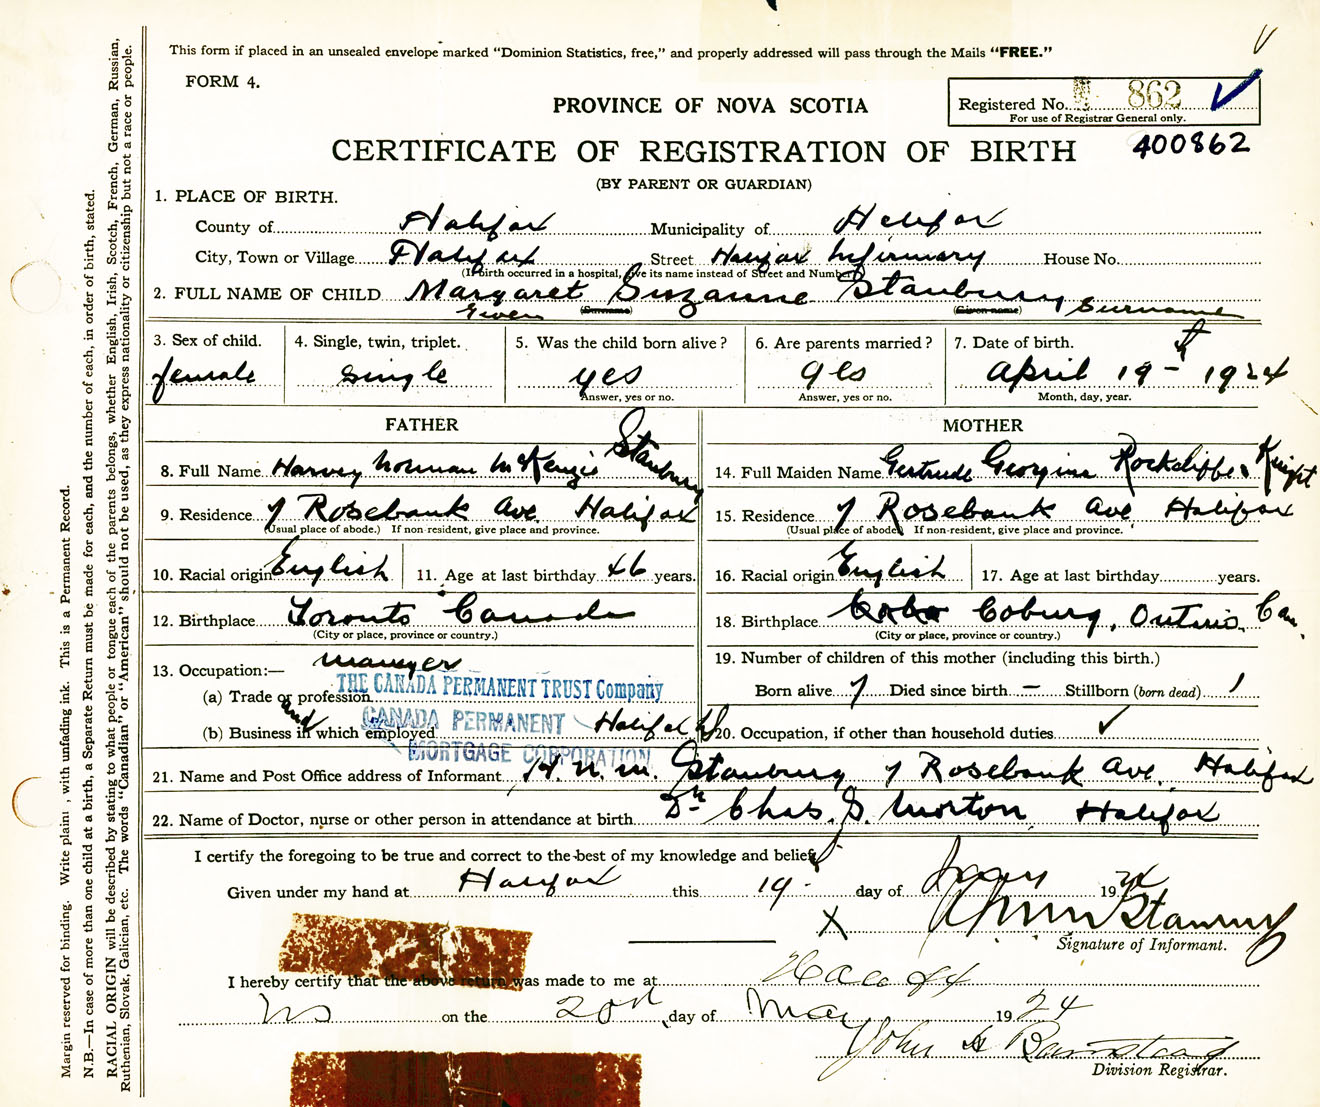 This form if placed in an unsealed envelope marked "Dominion Statistics, free," and properly addressed will pass through the Mails "FREE."
FORM 4.
PROVINCE OF NOVA SCOTIA
Registered No. 862
For use of Registrar General only.
CERTIFICATE OF REGISTRATION OF BIRTH
400862
(BY PARENT OR GUARDIAN)
1. PLACE OF BIRTH.
County of Halifax Municipality of Halifax
City, Town or Village Halifax Street Halifax Infirmary House No.
(If birth occurred in a hospital, give its name instead of Street and Number)
2. FULL NAME OF CHILD Margaret Suzanne Stanbury
Given (Surname) (Given name) Surname
3. Sex of child. 4. Single, twin, triplet. 5. Was the child born alive? 6. Are parents married? 7. Date of birth.
female single yes yes April 19th 1924
Answer, yes or no. Answer, yes or no. Month, day, year.
FATHER MOTHER
8. Full Name Harvey Norman McKenzie Stanbury 14. Full Maiden Name Gertrude Georgina Rockcliffe Knight
9. Residence 7 Rosebank Ave. Halifax 15. Residence 7 Rosebank Ave Halifax
(Usual place of abode.) If non-resident, give place and province. (Usual place of abode) If non-resident, give place and province.
10. Racial origin English 11. Age at last birthday 46 years. 16. Racial origin English 17. Age at last birthday years.
12. Birthplace Toronto Canada 18. Birthplace Coburg, Ontario, Can.
(City or place, province or country.) (City or place, province or country.)
13. Occupation:— manager 19. Number of children of this mother (including this birth.)
(a) Trade or profession THE CANADA PERMANENT TRUST Company Born alive 7 Died since birth — Stillborn (born dead) 1
and CANADA PERMANENT
(b) Business in which employed Halifax NS 20. Occupation, if other than household duties ✓
MORTGAGE CORPORATION
21. Name and Post Office address of Informant H. N. M. Stanbury 7 Rosebank Ave. Halifax
22. Name of Doctor, nurse or other person in attendance at birth Dr Chas. S. Morton Halifax
I certify the foregoing to be true and correct to the best of my knowledge and belief
Given under my hand at Halifax this 19 day of May 1924
X HNM Stanbury
Signature of Informant.
I hereby certify that the above return was made to me at Halifax
NS on the 20th day of May 1924
John A
Division Registrar.
Margin reserved for binding. Write plainly, with unfading ink. This is a Permanent Record.
N.B.—In case of more than one child at a birth, a Separate Return must be made for each, and the number of each, in order of birth, stated.
RACIAL ORIGIN will be described by stating to what people or tongue each of the parents belongs, whether English, Irish, Scotch, French, German, Russian,
Ruthenian, Slovak, Galician, etc. The words "Canadian" or "American" should not be used, as they express nationality or citizenship but not a race or people.